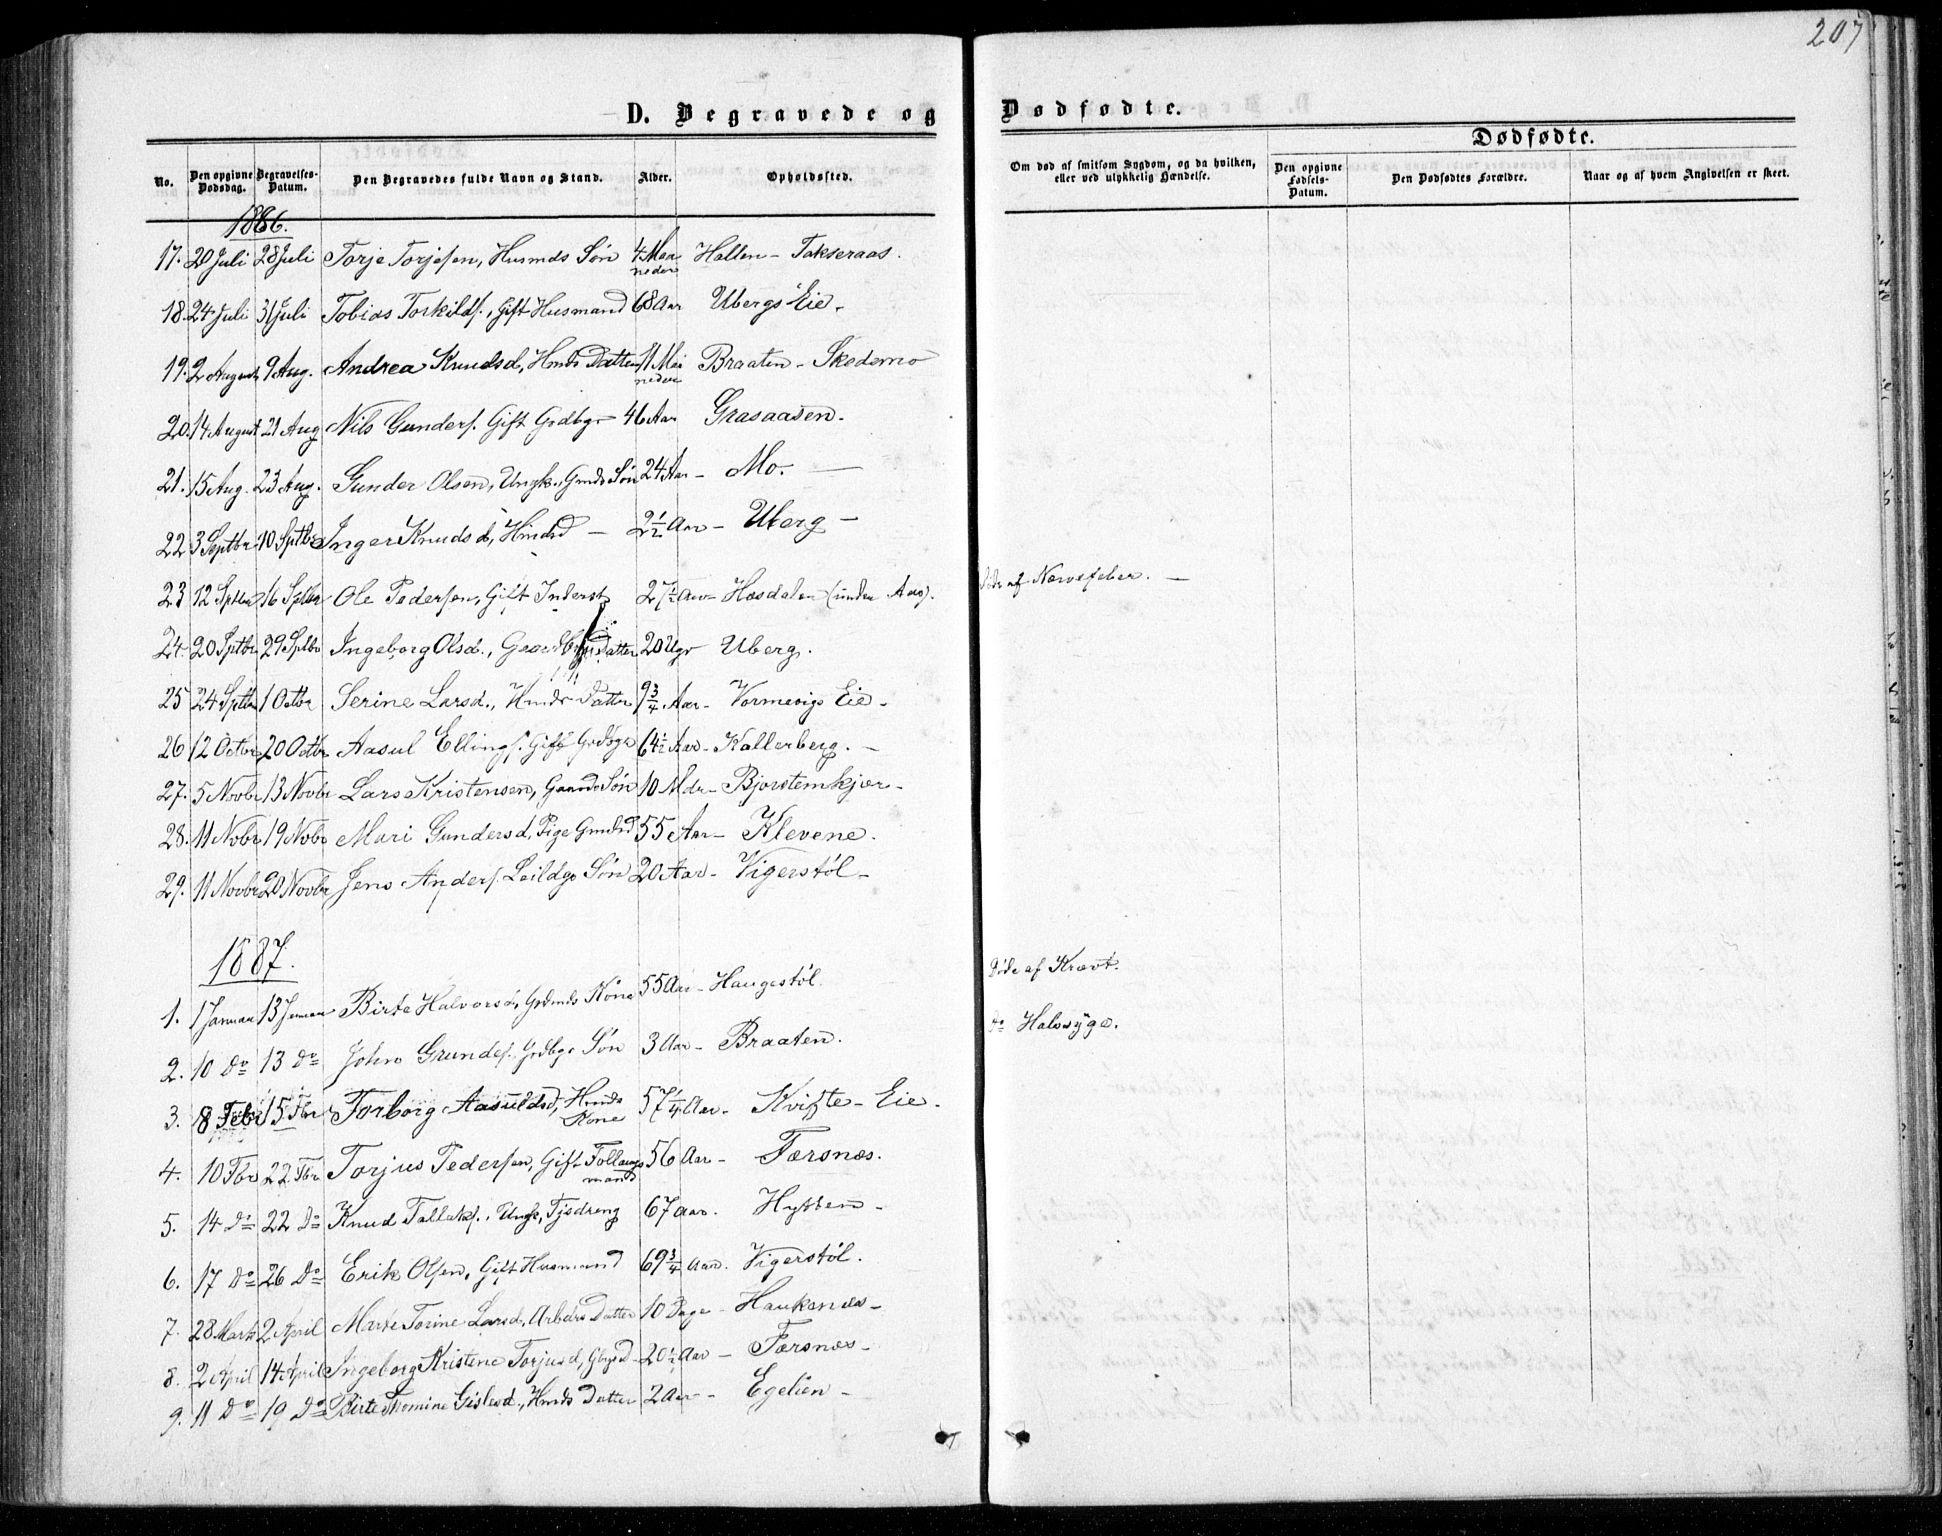 207
D. Begravede og Dødfødte.
Dødfødte.
No. Den opgivne Dødsdag. Begravelses-Datum. Den Begravedes fulde Navn og Stand. Alder. Opholdssted. Om død af smitsom Sygdom, og da hvilken, eller ved ulykkelig Hændelse. Den opgivne Fødsels-Datum. Den Dødfødtes Forældre. Naar og af hvem Angivelsen er skeet.
1886.
17. 20 Juli 28 Juli Torje Torjesen, Husmds Søn 4 Maaneder Hallen - Takseraas.
18. 24 Juli 31 Juli Tobias Torkilds., Gift Husmand 68 Aar Ubergs Eie -
19. 2 August 9 Aug. Andrea Knudsd, Hmds Datter 11 Maaneder Braaten - Skedsmo
20. 14 August 21 Aug Nils Gunders. Gift Grdbgr - 46 Aar Grasaasen -
21. 15 Aug. 23 Aug. Gunder Olsen, Ungk., Grmds Søn 24 Aar - Mo. -
22 3 Septbr 10 Sptbr Inger Knudsd, Hmdsd - 2 1/2 Aar - Uberg -
23 12 Sptbr 16 Sptbr Ole Pedersen, Gift Inderst 27 1/2 Aar - Hæsdalen (under Aas). Døde af Nervefeber. -
24. 20 Sptbr 29 Sptbr Ingeborg Olsd., Gaardbrgs Datter 20 Ugr Uberg.
25 24 Sptbr 1 Octbr Serine Larsd., Hmds Datter 9 3/4 Aar - Vormevigs Eie -
26 12 Octbr 20 Octbr Aasul Ellings. Gift Grdbgr 64 1/2 Aar - Kallerberg. -
27. 5 Novbr 13 Novbr Lars Kristensen, Gaardbs Søn 10 Mdr - Bjorstemkjær -
28. 11 Nobr 19 Nobr Mari Gundersd, Pige Gmdsd 55 Aar - Klevene.
29. 11 Novbr 20 Novbr Jens Anders. Leildgs Søn 20 Aar - Vigerstøl -
1887.
1. 1 Januar 13 Januar Birte Halvorsd, Grdmds Kone 55 Aar - Haugestøl. Døde af Kræft.
2. 10 do 13 do John Grundes., Grdbgs Søn 3 Aar - Braaten. do Halssyge.
3. 8 Febr 15 Fbr Torborg Aasuldsd, Hmds Kone 57 1/4 Aar - Kvifte - Eie.
4. 10 Fbr 22 Fbr Torjus Pedersen, Gift Follaugsmand 56 Aar - Færsnæs.
5. 14 do 22 do Knud Tallaks., Ungk., Tjsdreng 67 Aar. Hytten -
6. 17 do 26 do Erik Olsen, Gift Husmand 69 3/4 Aar. Vigerstøl.
7. 28 Marts 2 April Marte Torine Larsd, Arbeds Datter 10 Dage - Hauksnæs -
8. 2 April 14 April Ingeborg Kristene Torjusd, Gbrgsd - 20 1/2 Aar - Færsnæs -
9. 11 do 19 do Birte Thomine Gislesd., Hmds Datter 2 Aar - Egelien -